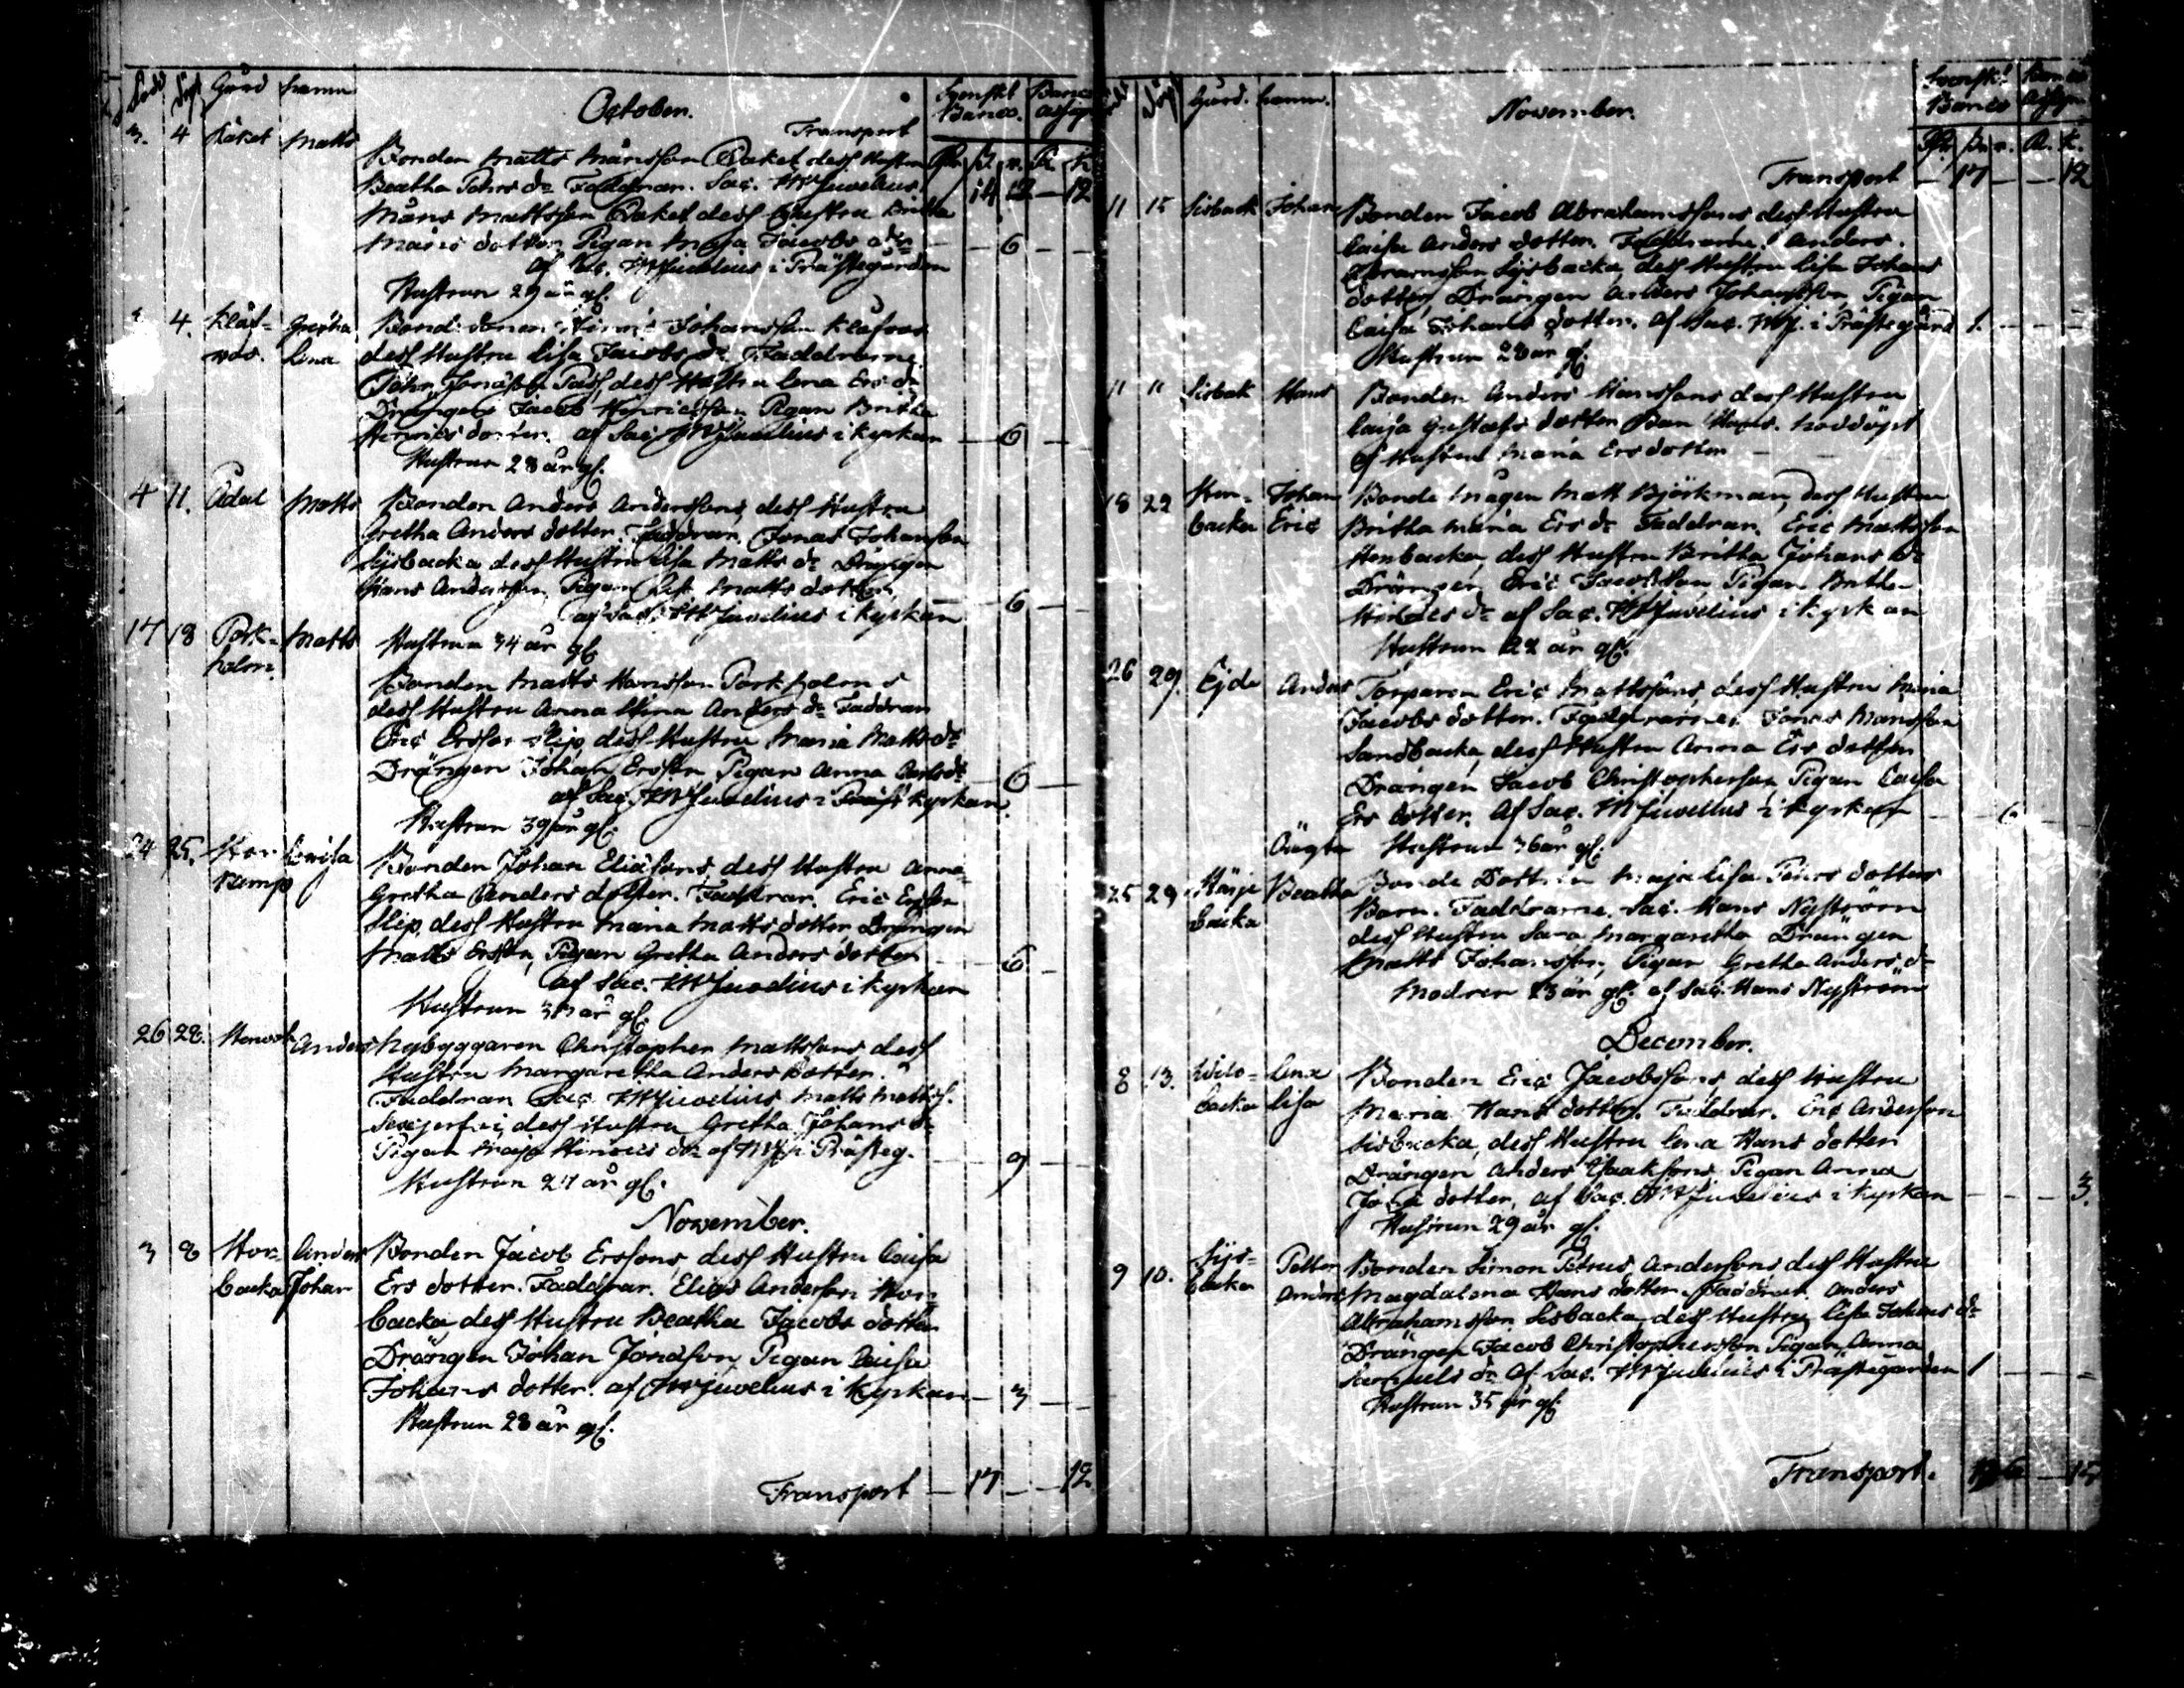 Född Döpt Gård Namn
October.
Svenskt Banco. Banco assign
Transport
3. 4 Råket Matts
Bonden Matts Månsson Råket dess Hustru
Beatha Pehrs dr Faddrar. Sac. JWJuvelius
14 12 — 12
Måns Mattsson Råket dess Hustru Britha
Matts dotter, Pigan Maja Jacobs dr — 6 —
af Sac. JWJuvelius i Prästegården
Hustrun 29 år gl.
4. Klåf- Gretha
vus. Lena
Bonde sonen Hinric Johansson Klåfvus
dess Hustru Lisa Jacobs dr Faddrarne
Johan Jonasson dess Hustru Lena Ers dr
Drängen Jacob Hinricsson Pigan Britha
Hinrics dotter. af Sac. JWJuvelius i kyrkan — 6 —
Hustrun 28 år gl.
4 11. Ådal Matts
Bonden Anders Anderssons, dess Hustru
Gretha Anders dotter. Faddrar. Jonas Johansson
Sijsbacka dess Hustru Lisa Matts dr Drängen
Hans Andersson, Pigan Lisa Matts dotter,
af Sac. JWJuvelius i kyrkan — 6 —
Hustrun 34 år gl.
17 18 Pork- Matts
holm.
Bonden Matts Hansson Porkholm s
dess Hustru Anna Stina Anders dr Faddrar
Eric Ersson Slip, dess Hustru Maria Matts dr
Drängen Johan Ersson Pigan Anna Carls dr — 6 —
af Sac. JWJuvelius i kyrkan.
Hustrun 39 år gl.
24 25. Stor- Lovisa
kamp
Bonden Johan Eliassons, dess Hustru Anna
Gretha Anders dotter. Faddrar. Eric Ersson
Slip, dess Hustru Maria Matts dotter Drängen
Matts Ersson, Pigan Gretha Anders dotter — 6 —
af Sac. JWJuvelius i kyrkan
Hustrun 37 år gl.
26 28. Anders
Nybyggaren Christopher Mattssons, dess
Hustru Margaretha Anders dotter.
Faddrar Sac. JWJuvelius Matts Mattss.
dess Hustru Gretha Johans dr
Pigan Maja Hinrics dr af JWJ i Prästeg. — 9 —
Hustrun 27 år gl.
November.
3 8 Stor- Anders
backa Johan
Bonden Jacob Erssons, dess Hustru Caisa
Ers dotter. Faddrar. Elias Andersson Stor-
backa dess Hustru Beatha Jacobs dotter
Drängen Johan Jonasson, Pigan Caisa
Johans dotter. af JWJuvelius i kyrkan — 3 —
Hustrun 28 år gl.
Transport — 17 — — 12
Född Döpt Gård. Namn.
November.
Svenskt Banco Banco assign
Transport — 17 — — 12
11 15 Sisback Johan
Bonden Jacob Abrahamssons dess Hustru
Caisa Anders dotter. Faddrarne: Anders
Abramsson Sijsbacka, dess Hustru Lisa Johans
dotter, Drängen Anders Johansson, Pigan
Caisa Johans dotter. af Sac. JWJ. i Prästegård 1. — — —
Hustrun 28 år gl.
11 11 Sisbak Hans
Bonden Anders Hanssons dess Hustru
Caisa Gustafs dotter Barn Hans. nöddöpt
af Hustru Maria Ers dotter —
18 22 Sten- Johan
backa Eric
Bonde mågen Matt Björkman, dess Hustru
Britha Maria Ers dr Faddrar. Eric Mattsson
Stenbacka, dess Hustru Britha Johans dr
Drängen Eric Jacobsson, Pigan Britha
Hinrics dr af Sac. JWJuvelius i kyrkan
Hustrun 22 år gl.
26 29. Ejde Anders
Torparen Eric Mattssons, dess Hustru Maria
Jacobs dotter. Faddrarne: Jonas Mansson
Sandbacka, dess Hustru Anna Ers dotter
Drängen Jacob Christophersson Pigan Caisa
Ers dotter. Af Sac. JWJuvelius i kyrkan — 6
Hustrun 36 år gl.
Oägta
25 29 Härje Beatha
backa
Bonde Dottren Maja Lisa Pehrs dotters
Barn. Faddrarne. Sac. Hans Nyström
dess Hustru Sara Margaretha Drängen
Matts Johansson, Pigan Gretha Anders dr
Modren 23 år gl. af Sac. Hans Nyström
December.
8 13. Wito- Lena
backa Lisa
Bonden Eric Jacobssons dess Hustru
Maria Hans dotter. Faddrar. Eric Andersson
Sisbacka, dess Hustru Lena Hans dotter
Drängen Anders Isaaksons Pigan Anna
Jona dotter, af Sac. JWJuvelius i kyrkan — — — 3.
Hustrun 29 år gl.
9 10. Sijs- Petter
backa Anders
Bonden Simon Petrus Anderssons dess Hustru
Magdalena Hans dotter. Faddrar. Anders
Abrahamsson Sisbacka, dess Hustru Lisa Johans dr
Drängen Jacob Christophersson Pigan Anna
Samuels dr af Sac. JWJuvelius i Prästegården 1 — — —
Hustrun 35 år gl.
Transport. — 15